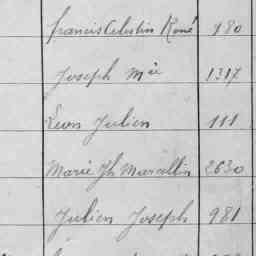 francis Celestin René 980
Joseph Mie 1317
Leon Julien 111
Marie Jh Marcellin 2630
Julien Joseph 981